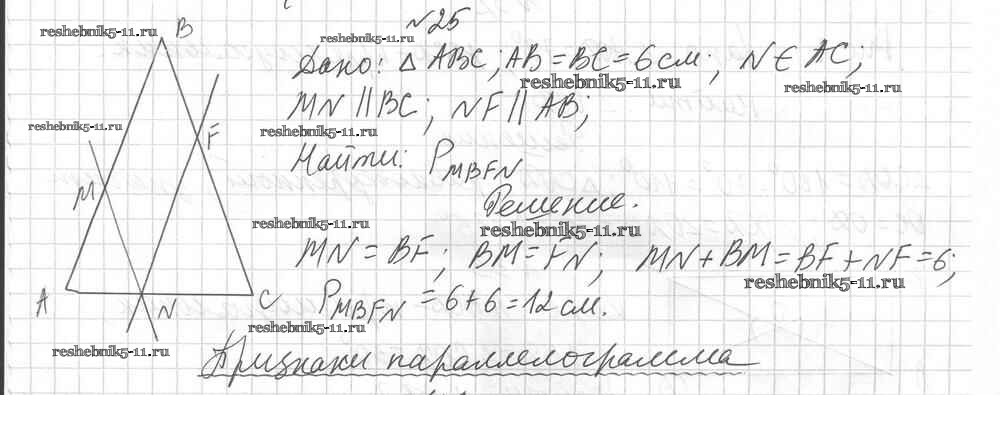 №25
B
reshebnik5-11.ru
reshebnik5-11.ru
Дано: △ ABC; AB = BC = 6 см; N ∈ AC;
reshebnik5-11.ru
reshebnik5-11.ru
MN || BC; NF || AB;
reshebnik5-11.ru
reshebnik5-11.ru
F
Найти: P MBFN
M
Решение.
reshebnik5-11.ru
reshebnik5-11.ru
MN = BF; BM = FN; MN + BM = BF + NF = 6;
reshebnik5-11.ru
A
N
C
P MBFN = 6 + 6 = 12 см.
reshebnik5-11.ru
reshebnik5-11.ru
Признаки параллелограмма